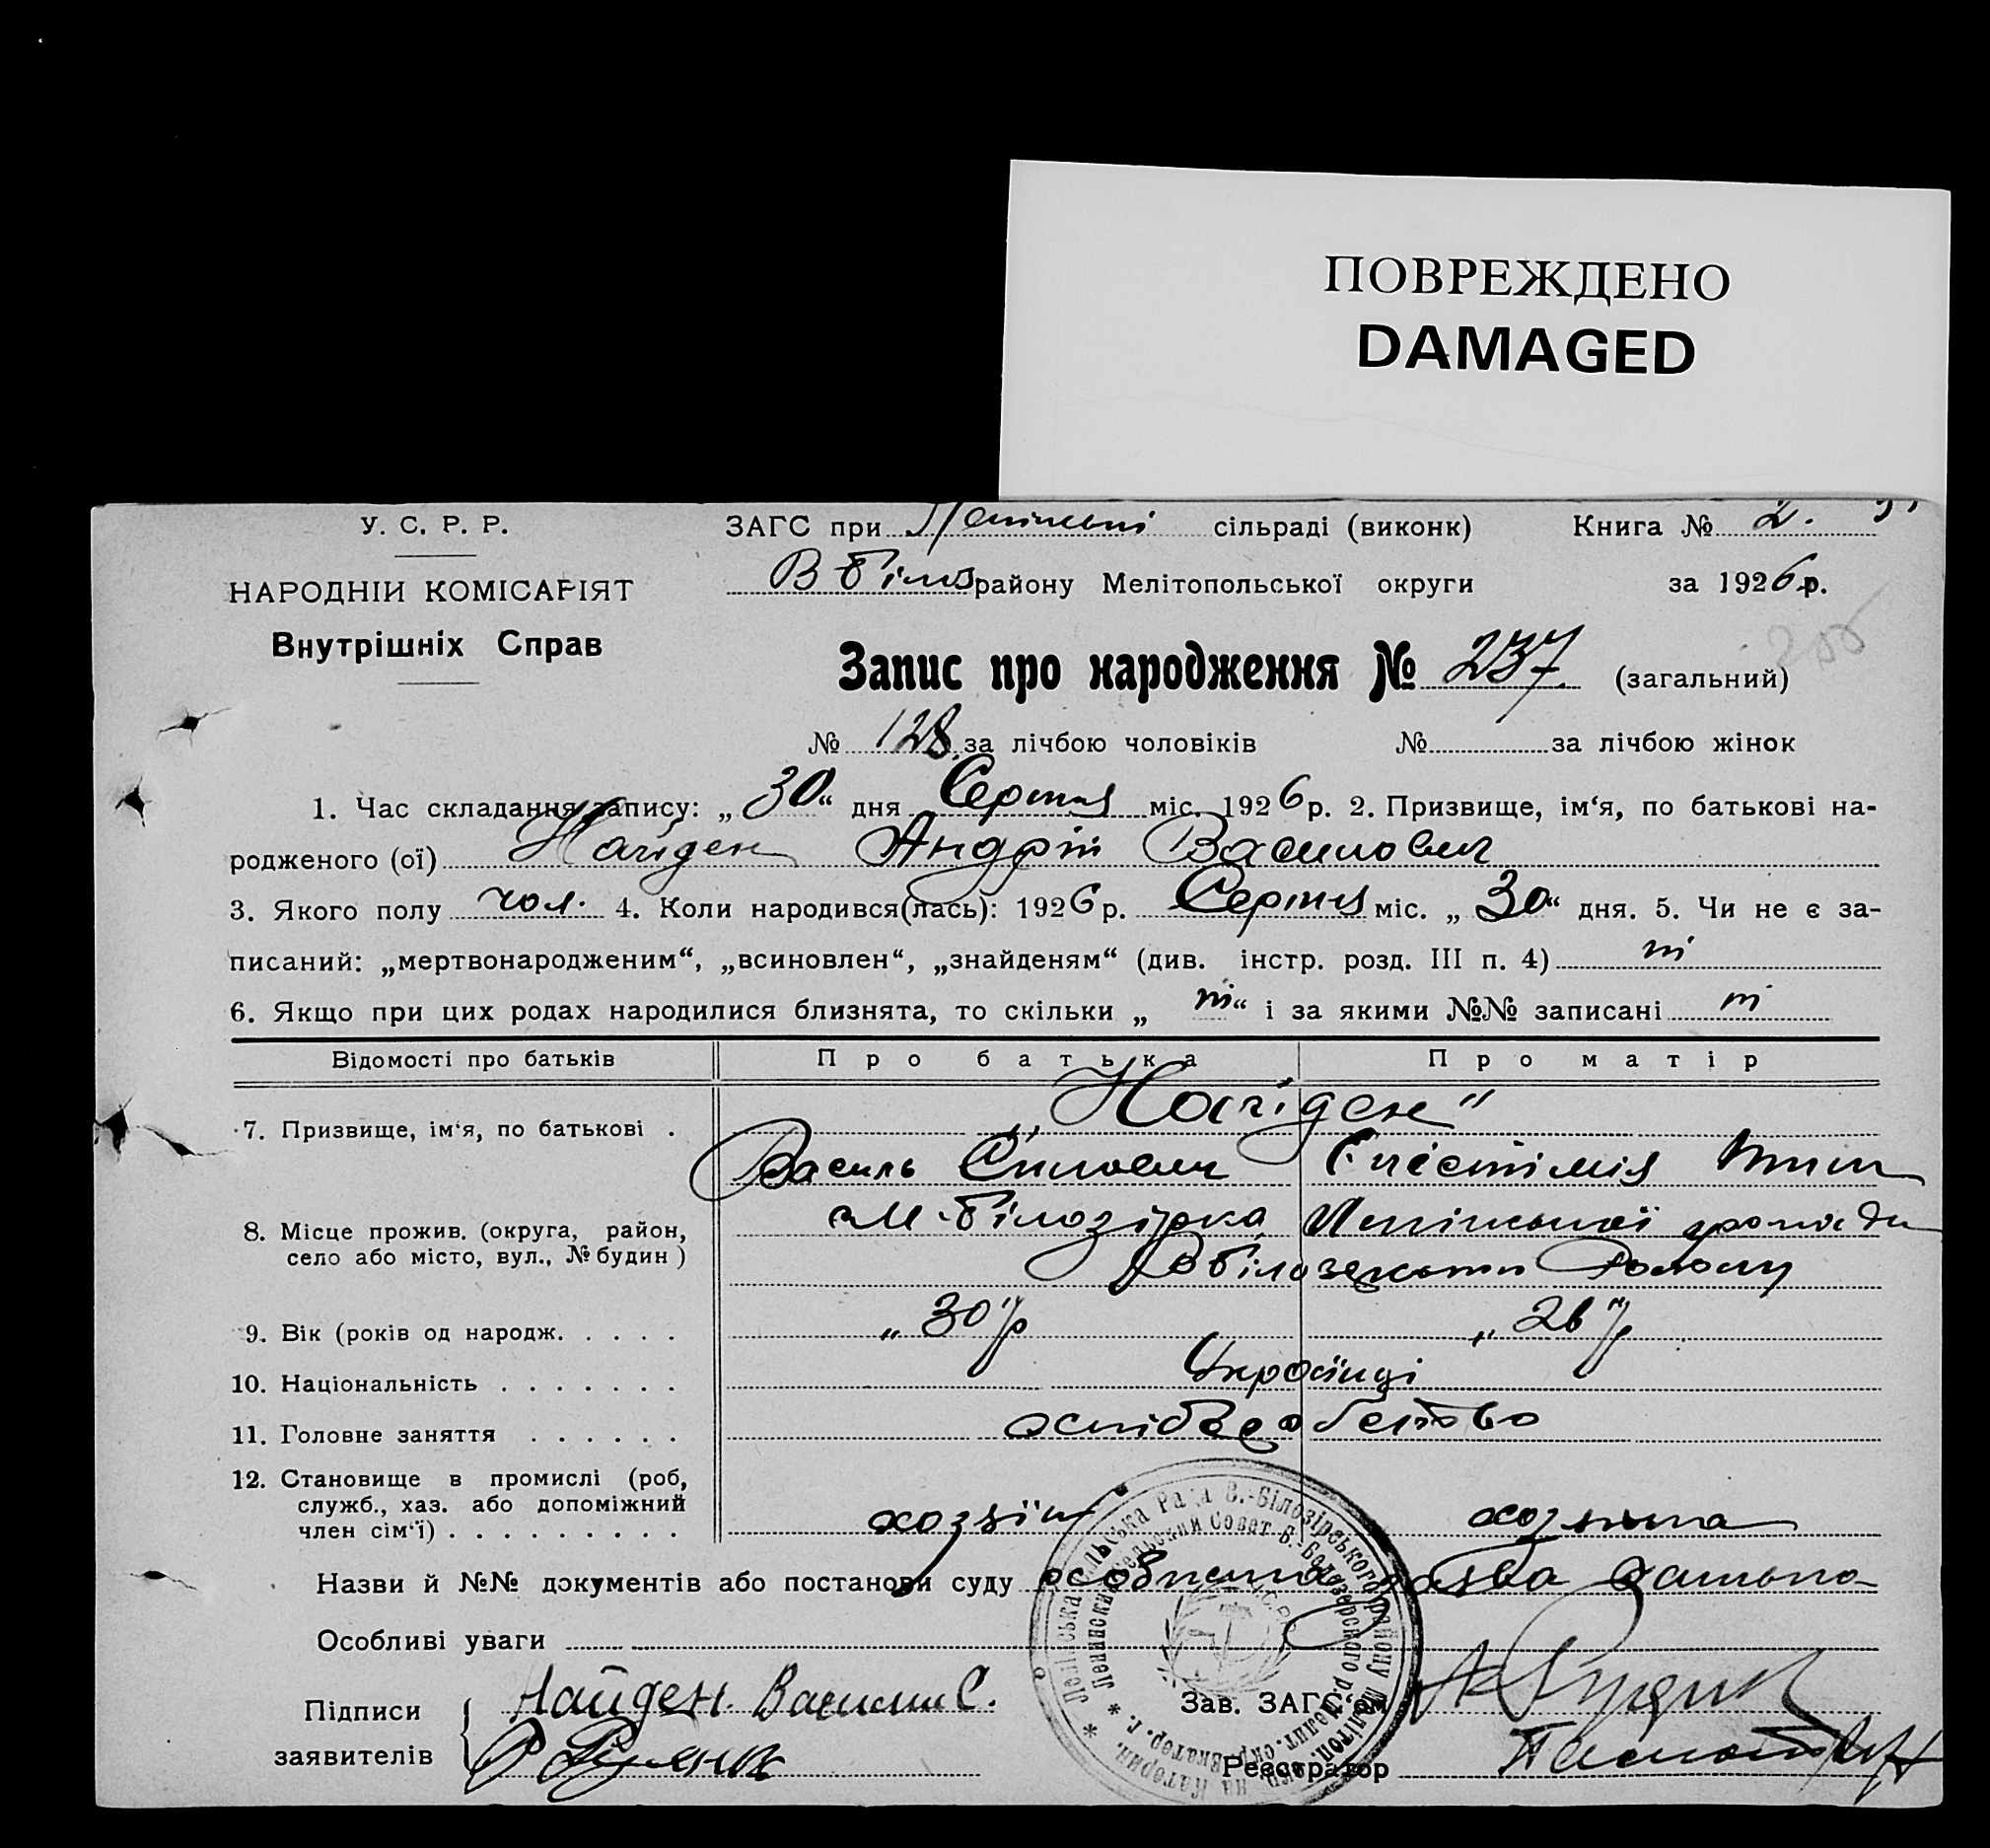 ПОВРЕЖДЕНО
DAMAGED
У. С. Р. Р.
НАРОДНІЙ КОМІСАРІЯТ
Внутрішніх Справ
ЗАГС при Ленінські сільраді (виконк) Книга № 2.
В Біло району Мелітопольської округи за 1926 р.
Запис про народження № 237 (загальний)
№ 128 за лічбою чоловіків № за лічбою жінок
1. Час складання запису: „30“ дня Серпня міс. 1926 р. 2. Призвище, ім‘я, по батькові на-
родженого (ої) Найден Андрій Василович
3. Якого полу чол. 4. Коли народився(лась): 1926 р. Серпня міс. „30“ дня. 5. Чи не є за-
писаний: „мертвонародженим“, „всиновлен“, „знайденям“ (див. інстр. розд. III п. 4) ні
6. Якщо при цих родах народилися близнята, то скільки „ні“ і за якими №№ записані ні
Відомості про батьків Про батька Про матір
7. Призвище, ім‘я, по батькові . „Найден“
Василь Силович
8. Місце прожив. (округа, район, М-Білозірка Ленінської громади
село або місто, вул., № будин)
9. Вік (років од народж. . . . . „30“ р „26“ р
10. Національність . . . . . . . Українці
11. Головне заняття . . . . . . хліборобство
12. Становище в промислі (роб,
служб., хаз. або допоміжний хозяїн
член сім‘ї) . . . . . . . . . .
Назви й №№ документів або постанови суду особиста заява батька
Особливі уваги
Підписи Найден Василий С. Зав. ЗАГС‘ом
заявителів Реєстратор
Ленінська Сільська Рада В.-Білозірського району Мелітоп. окр. на Катерин.
Ленинский Сельский Совет В.-Белозерского р. Мелит. окр. Екатер. г.